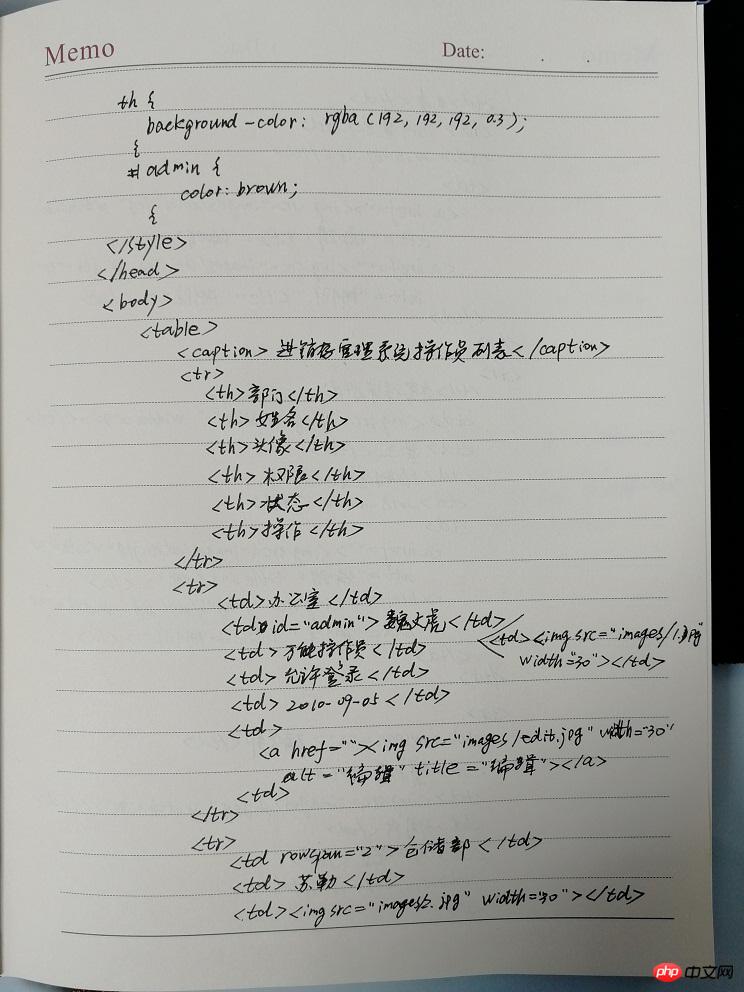 Memo Date: . .
th {
background-color: rgba(192, 192, 192, 0.3);
{
#admin {
color: brown;
{
</style>
</head>
<body>
<table>
<caption>进销存管理系统操作员列表</caption>
<tr>
<th>部门</th>
<th>姓名</th>
<th>头像</th>
<th>权限</th>
<th>状态</th>
<th>操作</th>
</tr>
<tr>
<td>办公室</td>
<td id="admin">魏大虎</td>
<td><img src="images/1.jpg"
width="30"></td>
<td>万能操作员</td>
<td>允许登录</td>
<td>2010-09-05</td>
<td>
<a href=""><img src="images/edit.jpg" width="30"
alt="编辑" title="编辑"></a>
<td>
</tr>
<tr>
<td rowspan="2">仓储部</td>
<td>苏勒</td>
<td><img src="images/2.jpg" width="30"></td>
php 中文网